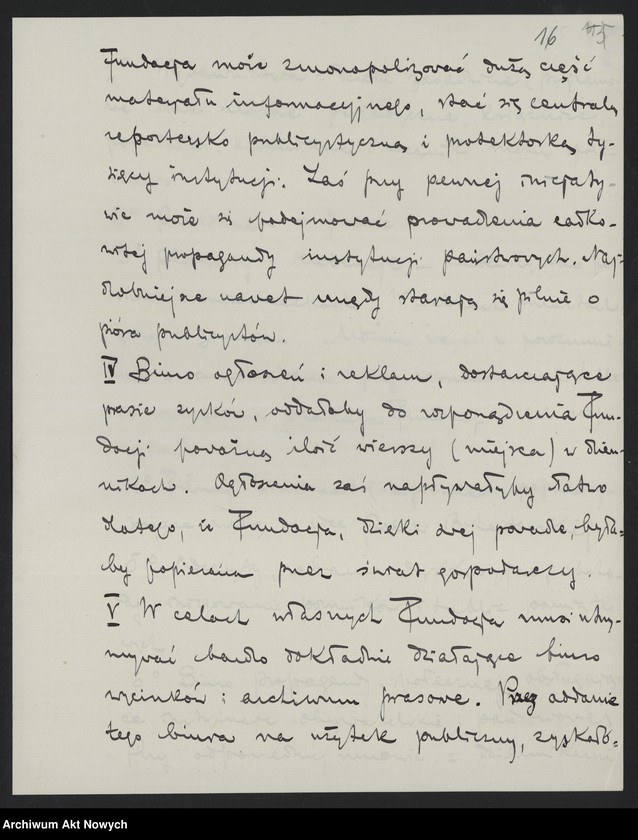 16 15
Fundacja może zmonopolizować dużą część
materjału informacyjnego, stać się centralą
reportersko publicystyczną i protektorką ty-
sięcy instytucji. Zaś przy pewnej inicjaty-
wie może się podejmować prowadzenia całko-
witej propagandy instytucji państwowych. Naj-
drobniejsze nawet urzędy starają się pilnie o
pióra publicystów.
IV Biuro ogłoszeń i reklam, dostarczające
prasie zysków, oddałaby do rozporządzenia Fun-
dacji poważną ilość wierszy (miejsca) w dzien-
nikach. Ogłoszenia zaś napływałyby łatwo
dlatego, iż Fundacja, dzięki swej powadze, była-
by popierana przez świat gospodarczy.
V W celach własnych Fundacja musi utrzy-
mywać bardzo dokładnie działające biuro
wycinków i archiwum prasowe. Przez oddanie
tego biura na użytek publiczny, zyskało-
Archiwum Akt Nowych